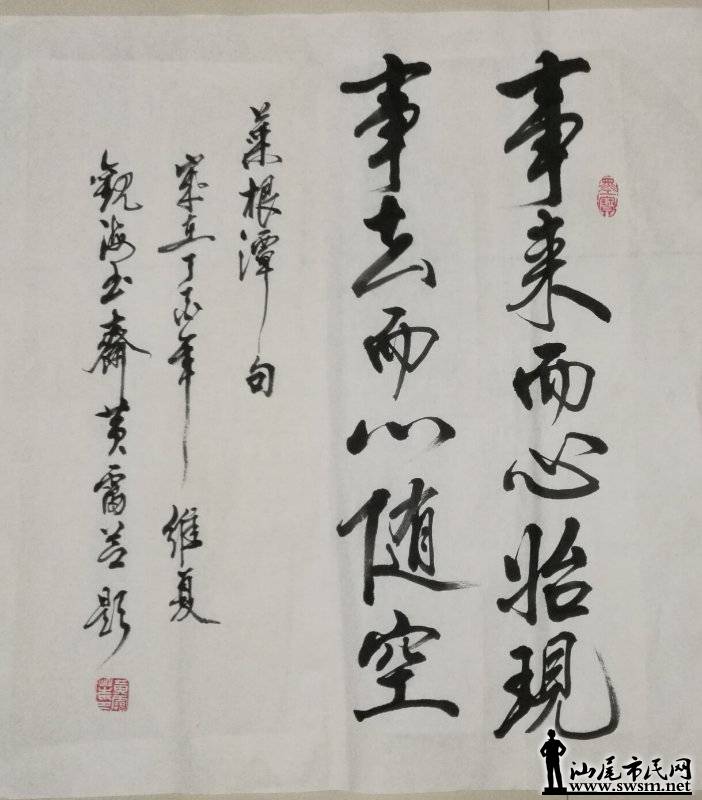 事来而心始現
事去而心随空
菜根潭句
岁在丁酉年 维夏
觀海书斋黄雷题
墨寶
汕尾市民网
www.swsm.net